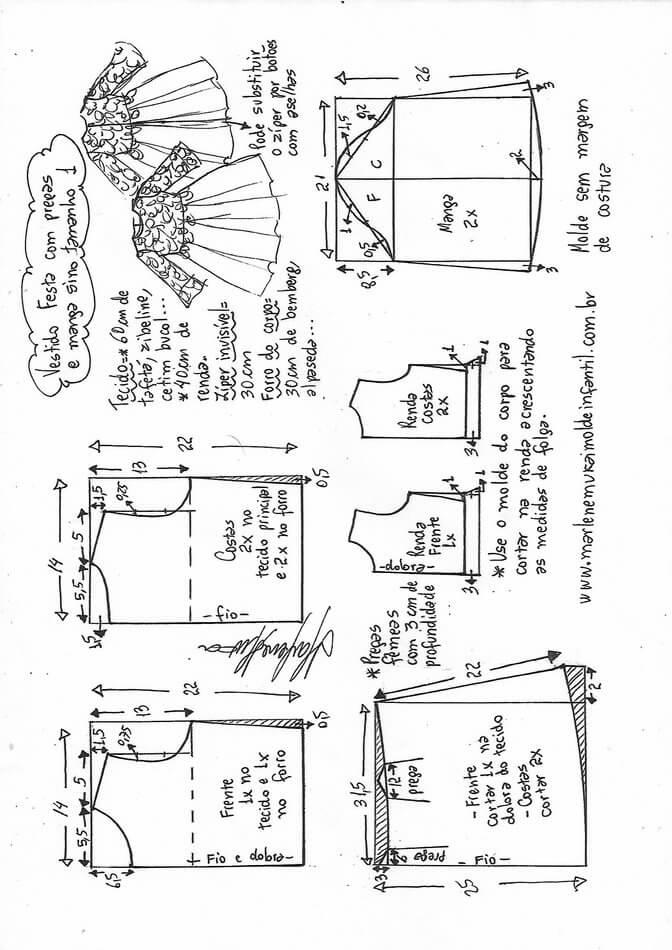 Vestido Festa com pregas
e manga sino tamanho 1
Pode substituir
o zíper por botões
com aselhas
Tecido=*60cm de
tafetá, zibeline,
cetim bucol...
*40cm de
renda.
Zíper invisível=
30cm
Forro do corpo=
30cm de bemberg,
alpaseda...
14
5,5
5
1,5
6,5
0,75
13
22
0,5
Frente
1x no
tecido e 1x
no forro
- Fio e dobra -
14
5,5
5
1,5
1,5
0,25
13
22
0,5
Costas
2x no
tecido principal
e 2x no forro
- fio -
21
26
8,5
1,5
0,2
1
0,5
F
C
Manga
2x
2
3
3
Molde sem margem
de costura
31,5
22
25
3
2
12
prega
6
prega
- Frente
cortar 1x na
dobra do tecido
- Costas
cortar 2x
- Fio -
*Pregas
fêmeas
com 3 cm de
profundidade
Renda
Frente
1x
- dobra -
3
1
1
Renda
Costas
2x
3
1
1
* Use o molde do corpo para
cortar na renda acrescentando
as medidas de folga.
www.marlenemukaimoldeinfantil.com.br